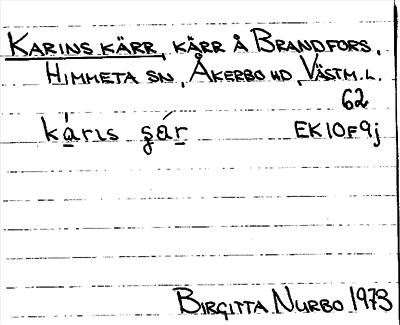 KARINS KÄRR, KÄRR Å BRANDFORS,
HIMMETA SN, ÅKERBO HD, VÄSTM.L.
62
káris ʂár EK10F9j
BIRGITTA NURBO 1973